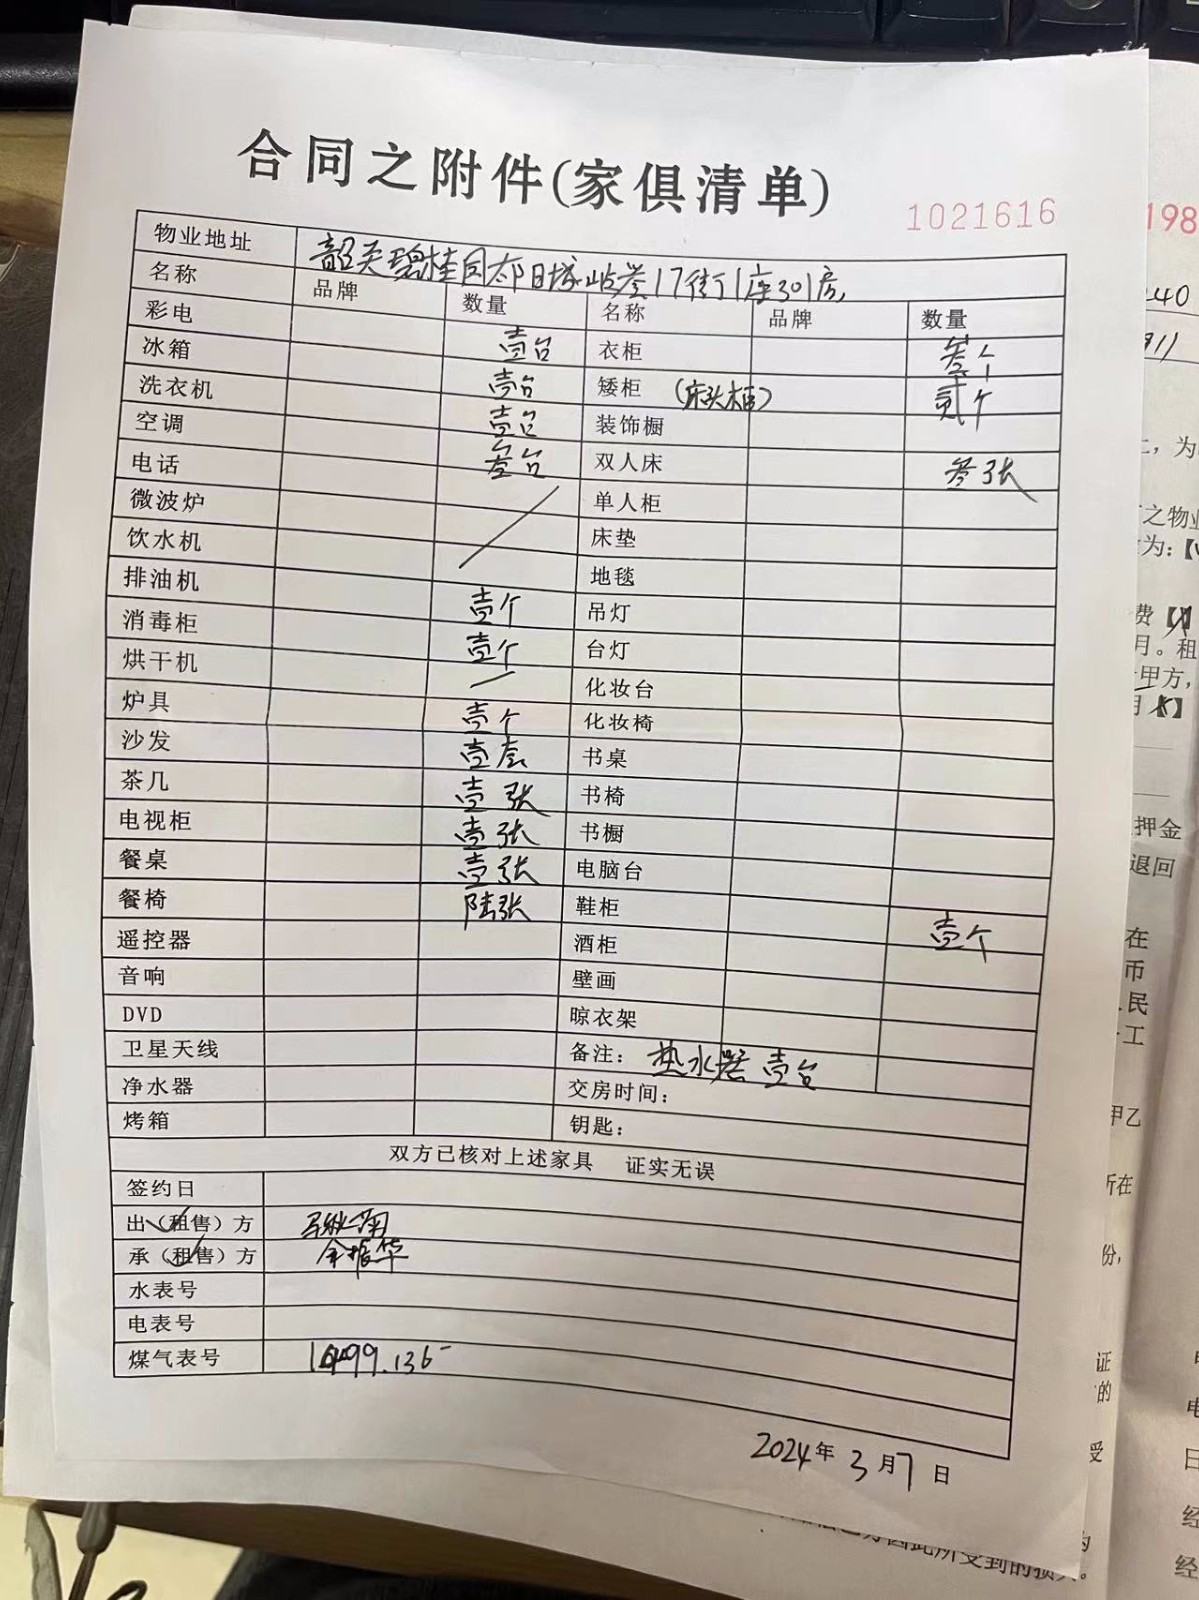 合同之附件(家俱清单)
1021616
物业地址 韶关碧桂园太阳城屿荟17街1座301房
名称 品牌 数量 名称 品牌 数量
彩电 壹台 衣柜 叁个
冰箱 壹台 矮柜 (床头柜) 贰个
洗衣机 壹台 装饰橱
空调 叁台 双人床 叁张
电话 单人柜
微波炉 床垫
饮水机 地毯
排油机 壹个 吊灯
消毒柜 壹个 台灯
烘干机 化妆台
炉具 壹个 化妆椅
沙发 壹套 书桌
茶几 壹张 书椅
电视柜 壹张 书橱
餐桌 壹张 电脑台
餐椅 陆张 鞋柜 壹个
遥控器 酒柜
音响 壁画
DVD 晾衣架
卫星天线 备注: 热水器 壹台
净水器 交房时间:
烤箱 钥匙:
双方已核对上述家具 证实无误
签约日
出(租售)方
承(租售)方 余振华
水表号
电表号
煤气表号
2024年3月7日
198
240
911
,为
之物业
为:【
费【
月。租
甲方,
月【
押金
退回
在
币
民
工
甲乙
所在
份,
证
的
受
为
方因此所受到的损失。
电
日
经
经